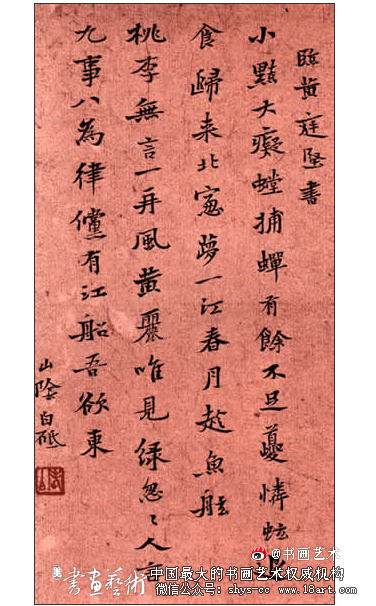 臨黄庭堅書
小黠大癡螳捕蟬有餘不足夔憐蚿退
食歸来北窻夢一江春月趂魚船
桃李無言一再風黄麗唯見緑怱〻人言
九事八為律儻有江船吾欲東
山陰白砥
@书画艺术
美 書畫藝術
中国最大的书画艺术权威机构
微信公众号:shys-cc www.18art.com